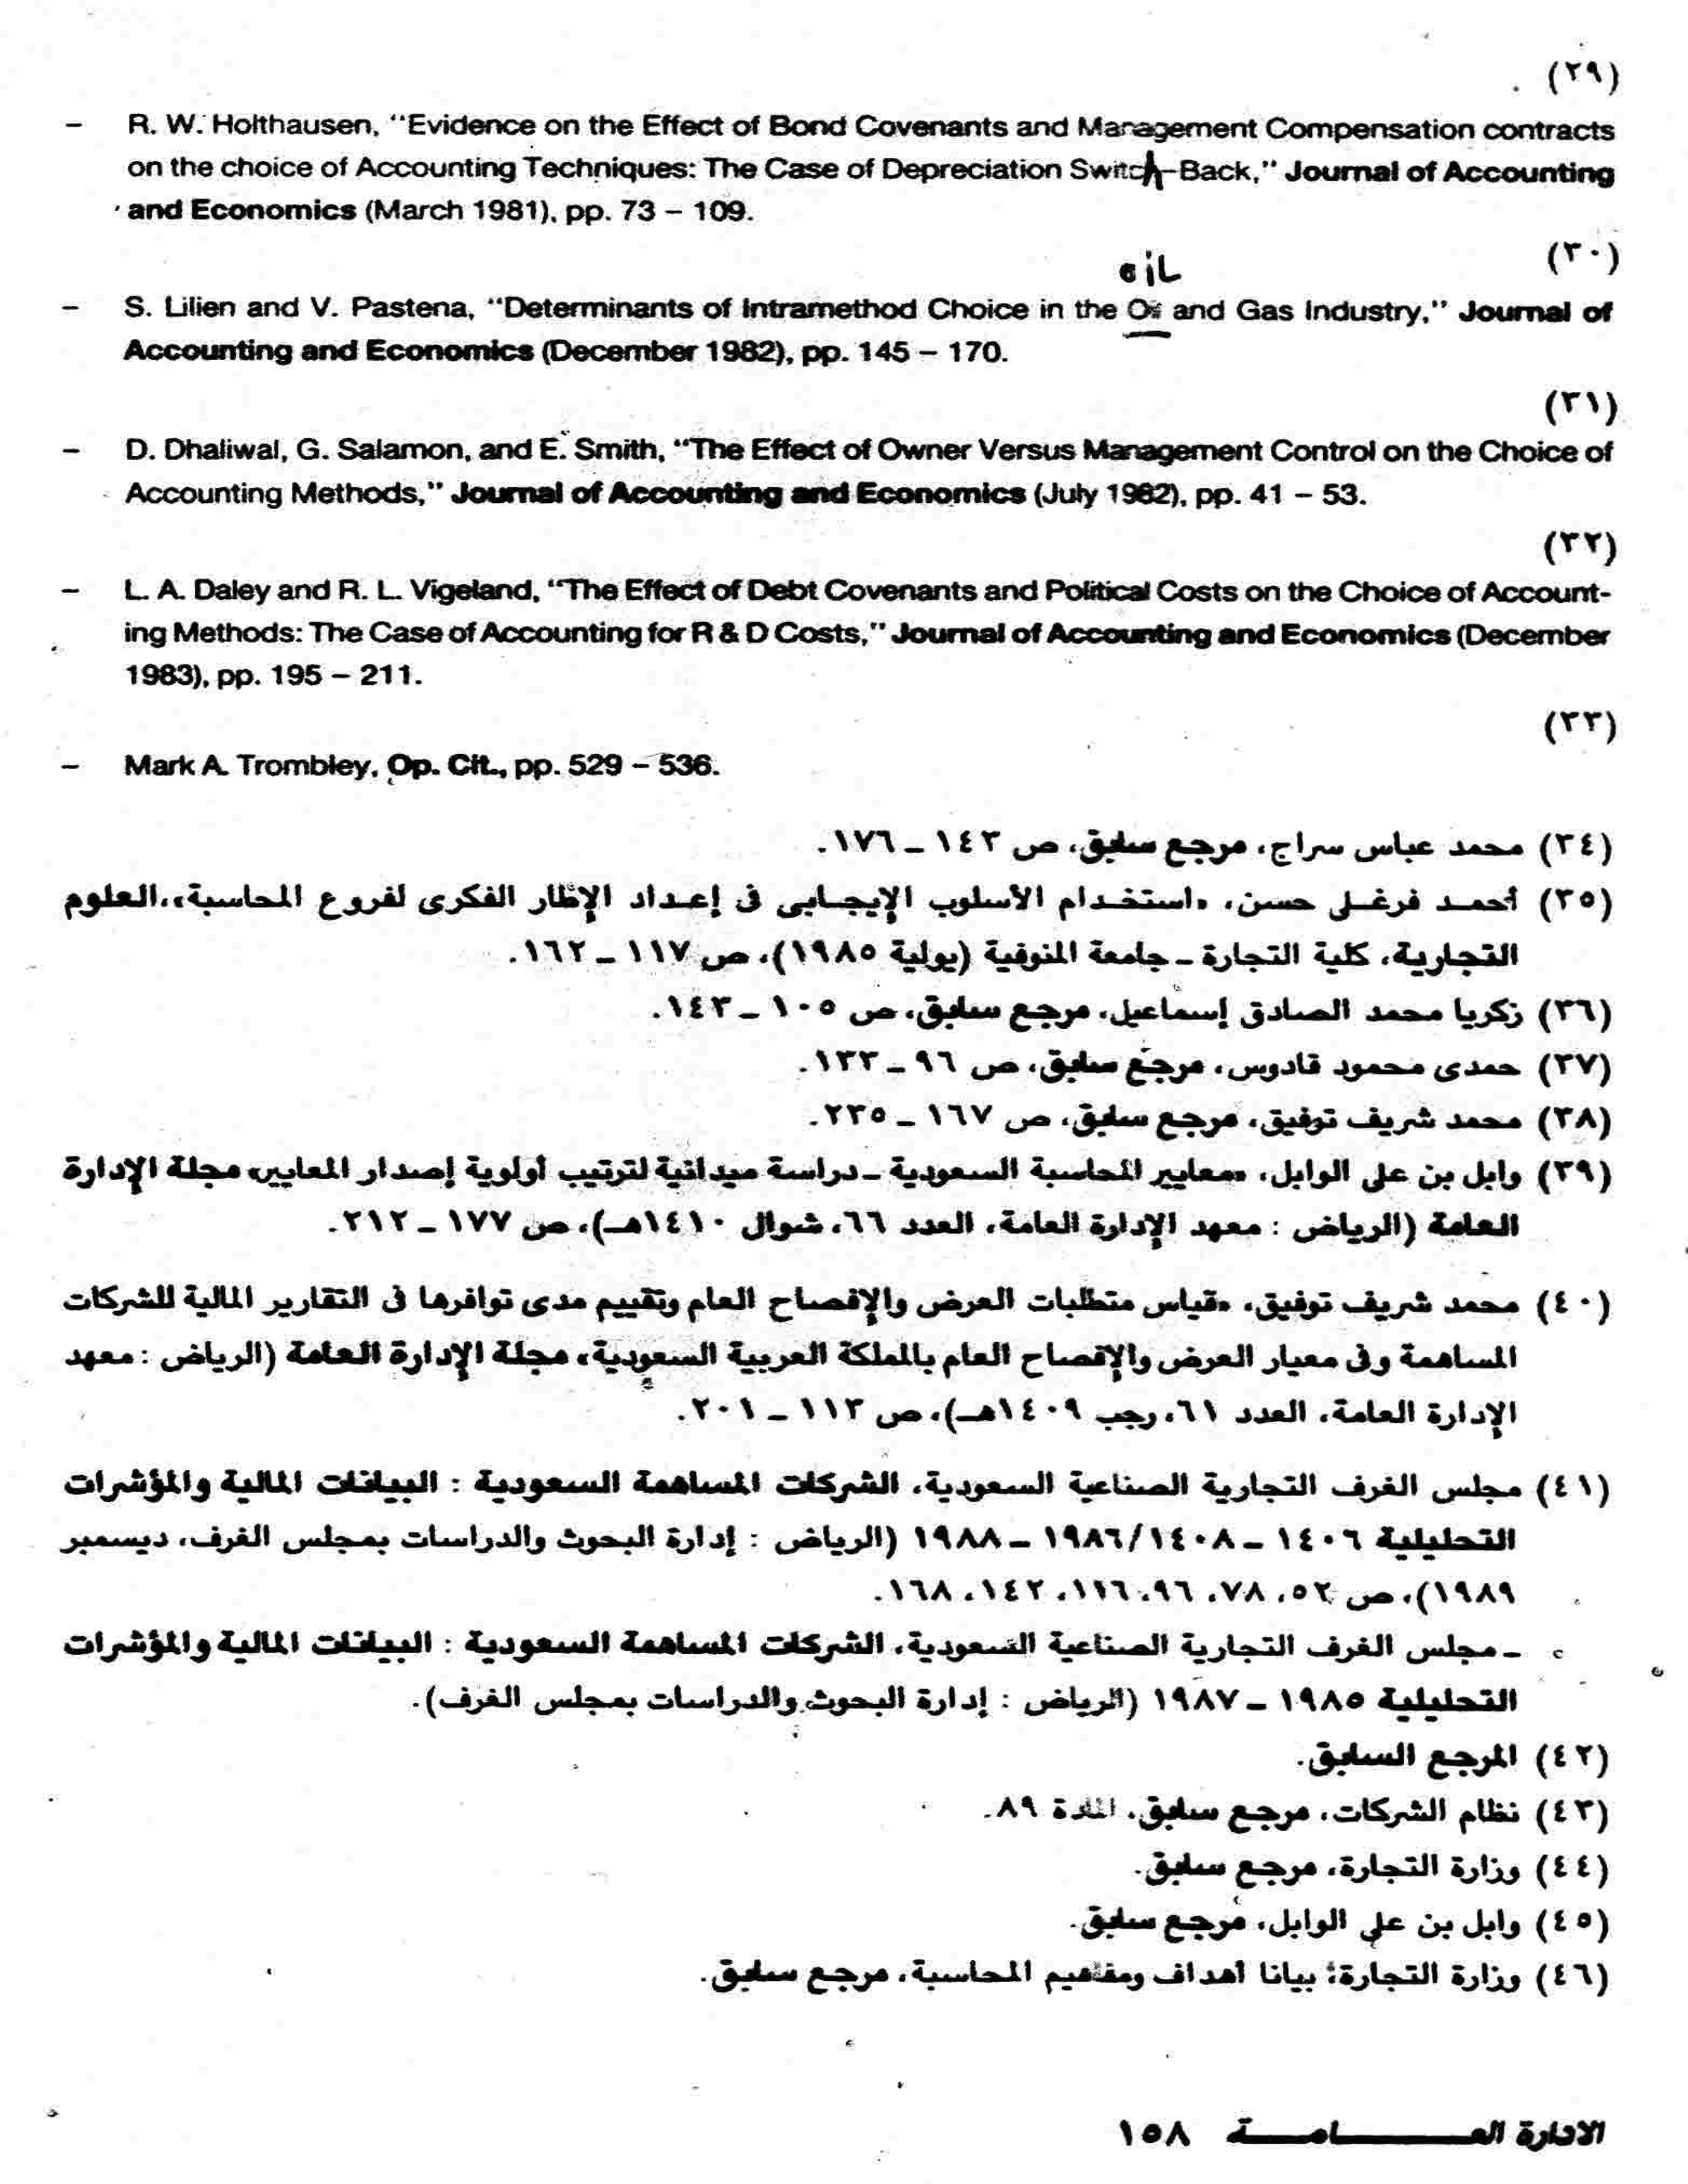 (٢٩)
– R. W. Holthausen, "Evidence on the Effect of Bond Covenants and Management Compensation contracts
on the choice of Accounting Techniques: The Case of Depreciation Switch-Back," Journal of Accounting
and Economics (March 1981), pp. 73 – 109.
(٣٠)
oiL
– S. Lilien and V. Pastena, "Determinants of Intramethod Choice in the and Gas Industry," Journal of
Accounting and Economics (December 1982), pp. 145 – 170.
(٣١)
– D. Dhaliwal, G. Salamon, and E. Smith, "The Effect of Owner Versus Management Control on the Choice of
Accounting Methods," Journal of Accounting and Economics (July 1982), pp. 41 – 53.
(٣٢)
– L. A. Daley and R. L. Vigeland, "The Effect of Debt Covenants and Political Costs on the Choice of Account-
ing Methods: The Case of Accounting for R & D Costs," Journal of Accounting and Economics (December
1983), pp. 195 – 211.
(٣٣)
– Mark A. Trombley, Op. Cit., pp. 529 – 536.
(٣٤) محمد عباس سراج، مرجع سابق، ص ١٤٣ ـ ١٧٦.
(٣٥) أحمد فرغلى حسن، «استخدام الأسلوب الإيجابى فى إعداد الإطار الفكرى لفروع المحاسبة»، العلوم
التجارية، كلية التجارة ـ جامعة المنوفية (يولية ١٩٨٥)، ص ١١٧ ـ ١٦٢.
(٣٦) زكريا محمد الصادق إسماعيل، مرجع سابق، ص ١٠٥ ـ ١٤٣.
(٣٧) حمدى محمود قادوس، مرجع سابق، ص ٩٦ ـ ١٣٣.
(٣٨) محمد شريف توفيق، مرجع سابق، ص ١٦٧ ـ ٢٣٥.
(٣٩) وابل بن على الوابل، «معايير المحاسبة السعودية ـ دراسة ميدانية لترتيب أولوية إصدار المعايير» مجلة الإدارة
العامة (الرياض : معهد الإدارة العامة، العدد ٦٦، شوال ١٤١٠هـ)، ص ١٧٧ ـ ٢١٢.
(٤٠) محمد شريف توفيق، «قياس متطلبات العرض والإفصاح العام وتقييم مدى توافرها فى التقارير المالية للشركات
المساهمة وفى معيار العرض والإفصاح العام بالمملكة العربية السعودية» مجلة الإدارة العامة (الرياض : معهد
الإدارة العامة، العدد ٦١، رجب ١٤٠٩هـ)، ص ١١٣ ـ ٢٠١.
(٤١) مجلس الغرف التجارية الصناعية السعودية، الشركات المساهمة السعودية : البيانات المالية والمؤشرات
التحليلية ١٤٠٦ ـ ١٤٠٨/١٩٨٦ ـ ١٩٨٨ (الرياض : إدارة البحوث والدراسات بمجلس الغرف، ديسمبر
١٩٨٩)، ص ٥٢، ٧٨، ٩٦، ١١٦، ١٤٢، ١٦٨.
ـ مجلس الغرف التجارية الصناعية السعودية، الشركات المساهمة السعودية : البيانات المالية والمؤشرات
التحليلية ١٩٨٥ ـ ١٩٨٧ (الرياض : إدارة البحوث والدراسات بمجلس الغرف).
(٤٢) المرجع السابق.
(٤٣) نظام الشركات، مرجع سابق، المادة ٨٩.
(٤٤) وزارة التجارة، مرجع سابق.
(٤٥) وابل بن على الوابل، مرجع سابق.
(٤٦) وزارة التجارة؛ بيانا أهداف ومفاهيم المحاسبة، مرجع سابق.
الادارة العـــامـــة ١٥٨